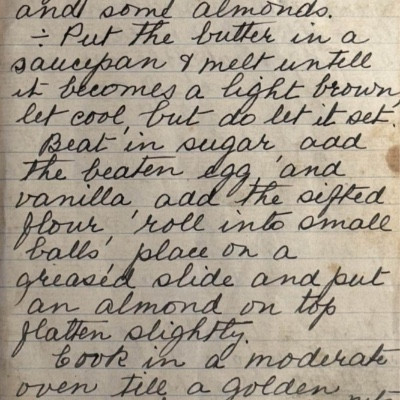 and some almonds.
÷ Put the butter in a
saucepan & melt untill
it becomes a light brown,
let cool, but do let it set.
Beat in sugar, add
the beaten egg, and
vanilla, add the sifted
flour, roll into small
balls, place on a
greased slide and put
an almond on top
flatten slightly.
Cook in a moderate
oven till a golden